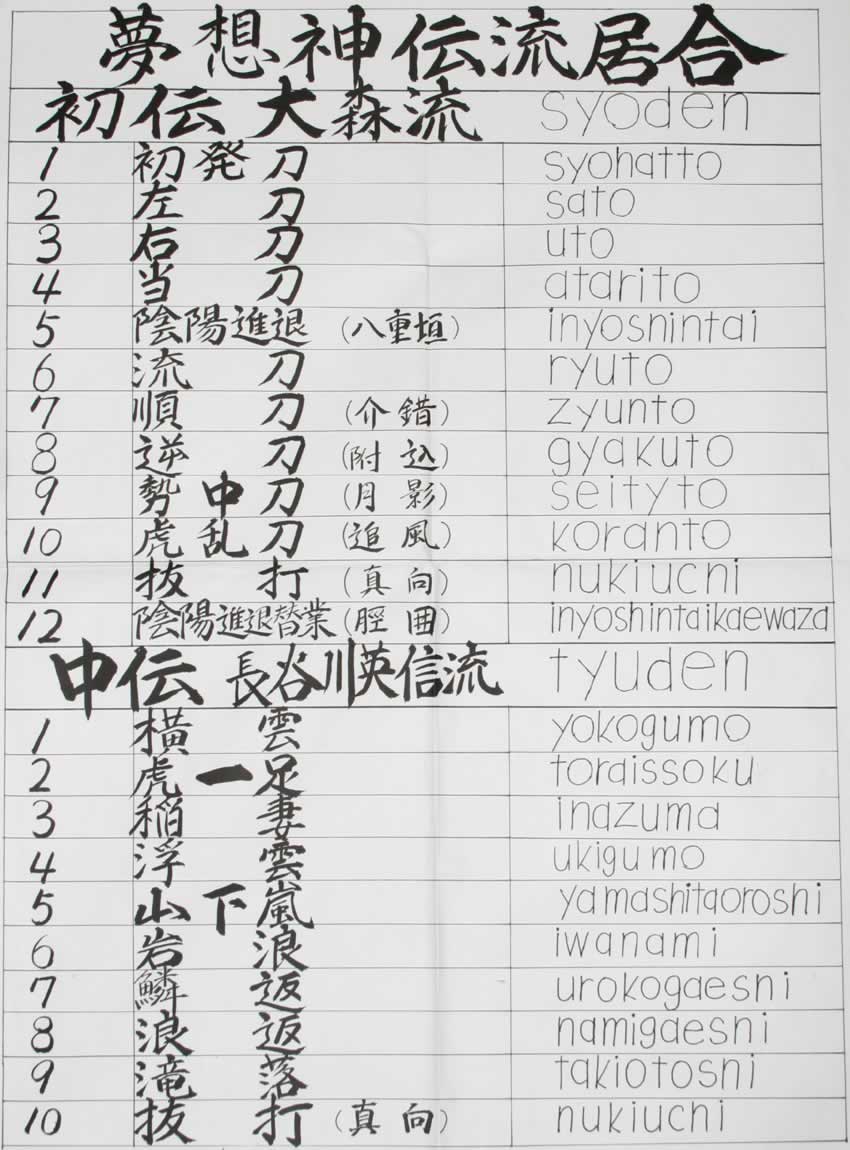 夢想神伝流居合
初伝 大森流 syoden
1 初発刀 syohatto
2 左刀 sato
3 右刀 uto
4 当刀 atarito
5 陰陽進退 (八重垣) inyoshintai
6 流刀 ryuto
7 順刀 (介錯) zyunto
8 逆刀 (附込) gyakuto
9 勢中刀 (月影) seityto
10 虎乱刀 (追風) koranto
11 抜打 (真向) nukiuchi
12 陰陽進退替業 (脛囲) inyoshintaikaewaza
中伝 長谷川英信流 tyuden
1 横雲 yokogumo
2 虎一足 toraissoku
3 稲妻 inazuma
4 浮雲 ukigumo
5 山下嵐 yamashitaoroshi
6 岩浪 iwanami
7 鱗返 urokogaeshi
8 浪返 namigaeshi
9 滝落 takiotoshi
10 抜打 (真向) nukiuchi